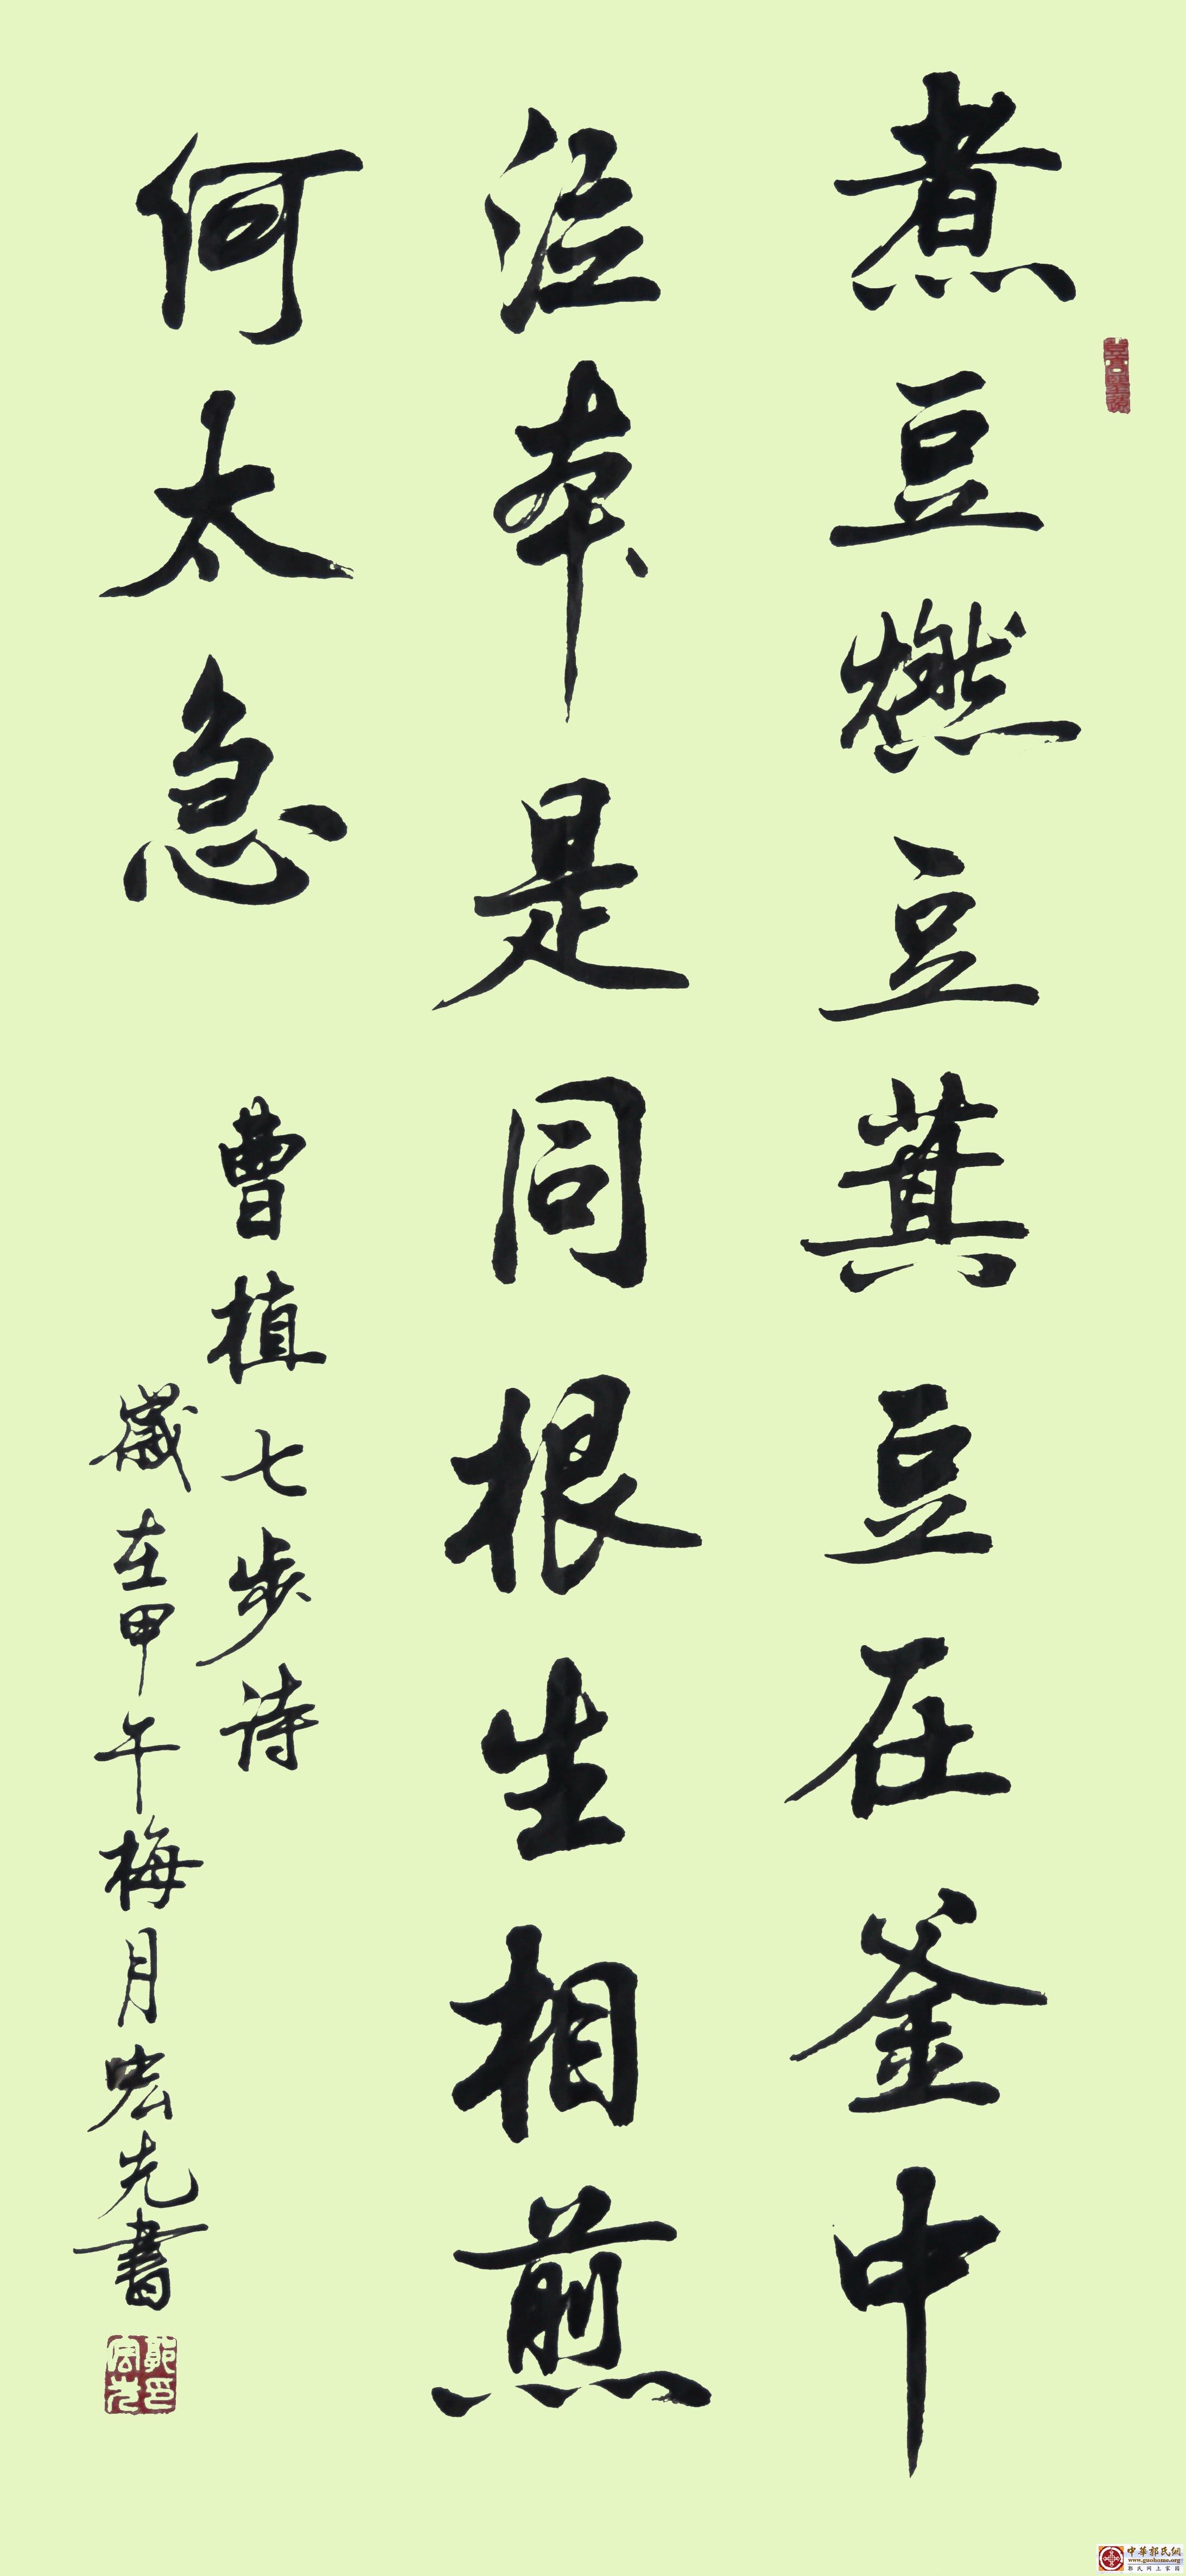 煮豆燃豆萁豆在釜中
泣本是同根生相煎
何太急
曹植七步诗
歲在甲午梅月宏先書
郭印宏先
中華郭氏網
www.guohome.org
郭氏网上家园